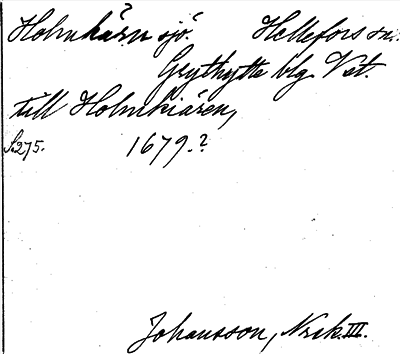 Holmkärn sjö. Hellefors sn.
Grythytte blg. Vst.
till Holmkiären,
S.275. 1679.?
Johansson, Nrik.III.